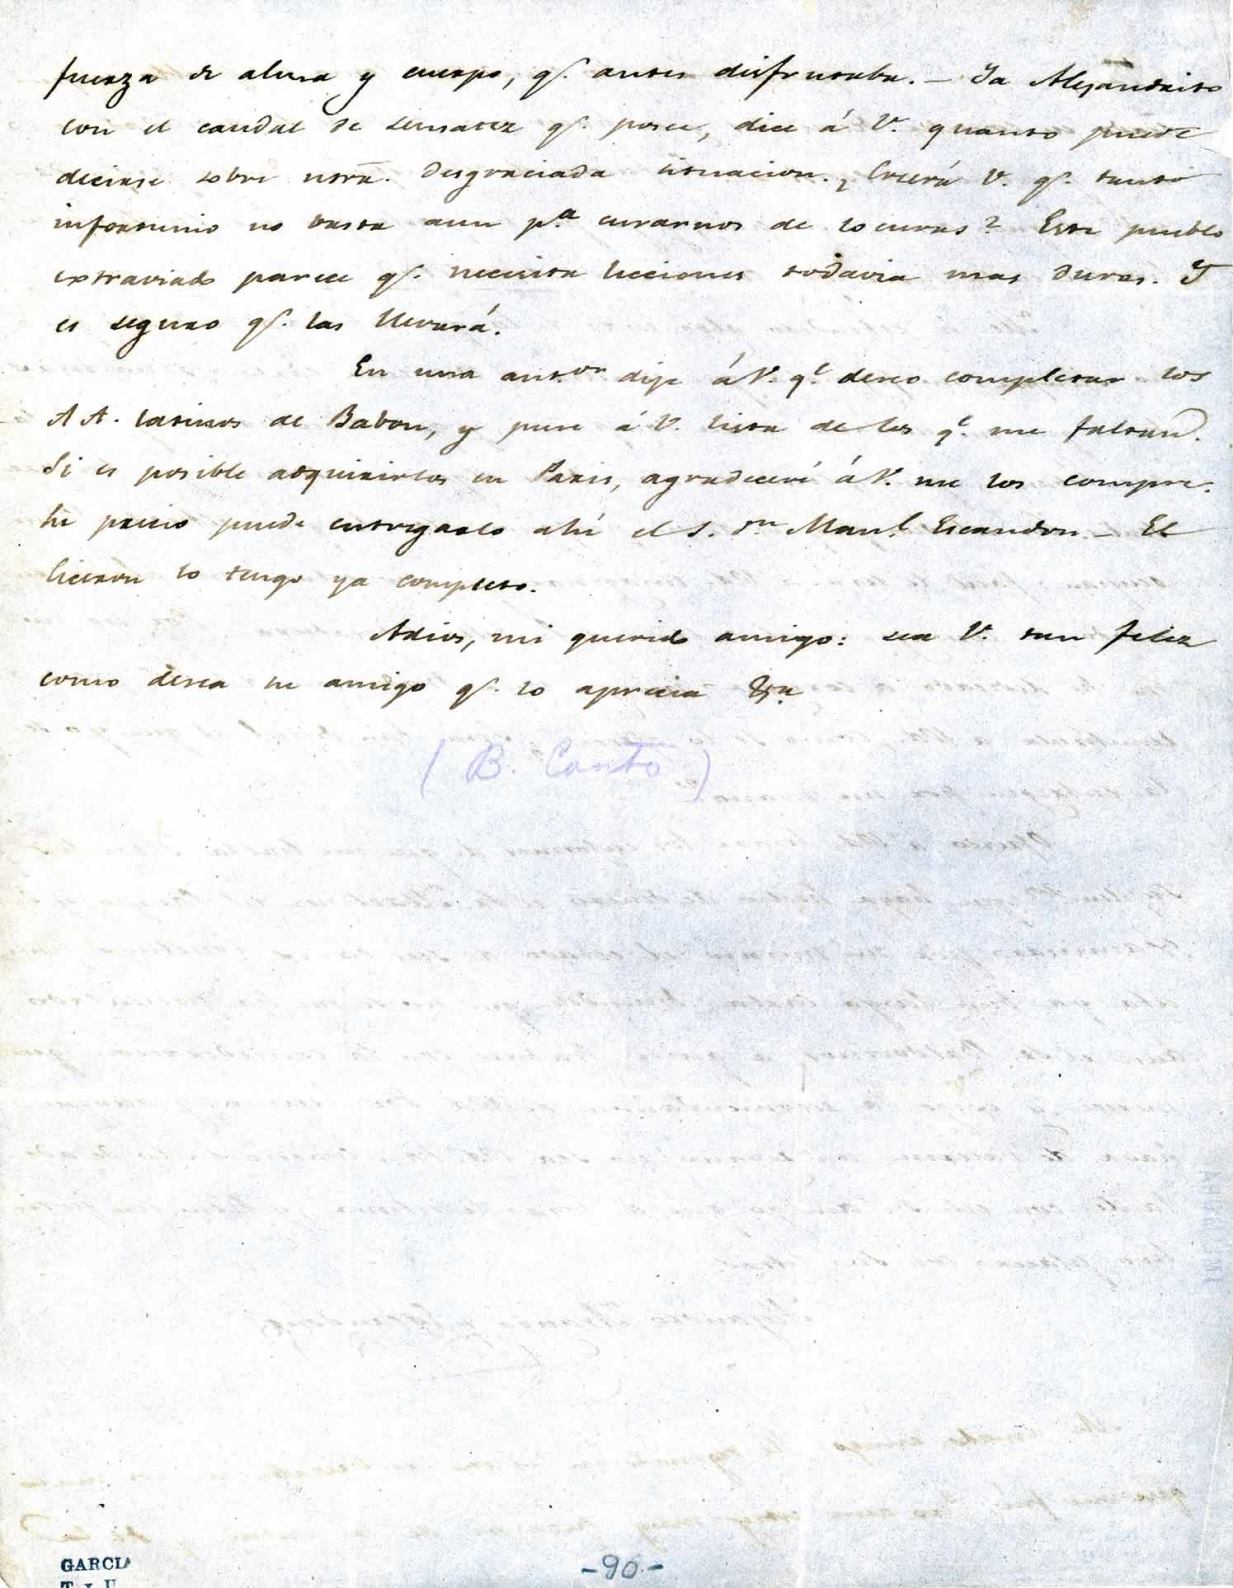 fuerza de alma y cuerpo, q.e antes disfrutaba. — Ya Alejandrito
con el caudal de sensatez q.e posee, dice á V. quanto puede
decirse sobre ntra. desgraciada situacion. ¿Creerá V. q.e tanto
infortunio no basta aun p.a curarnos de locuras? Este pueblo
extraviado parece q.e necesita lecciones todavia mas duras. Y
es seguro q.e las llevará.
En una ant.or dije á V. q.e deseo completar los
AA. latinos de Babou, y puse á V. lista de los q.e me faltan.
Si es posible adquirirlos en Paris, agradeceré á V. me los compre.
Su precio puede entregarlo ahi el S. D.n Man.l Escandon — El
Ciceron lo tengo ya completo.
Adios, mi querido amigo: sea V. tan feliz
como desea su amigo q.e lo aprecia &.a
( B. Couto )
-90-
GARCIA